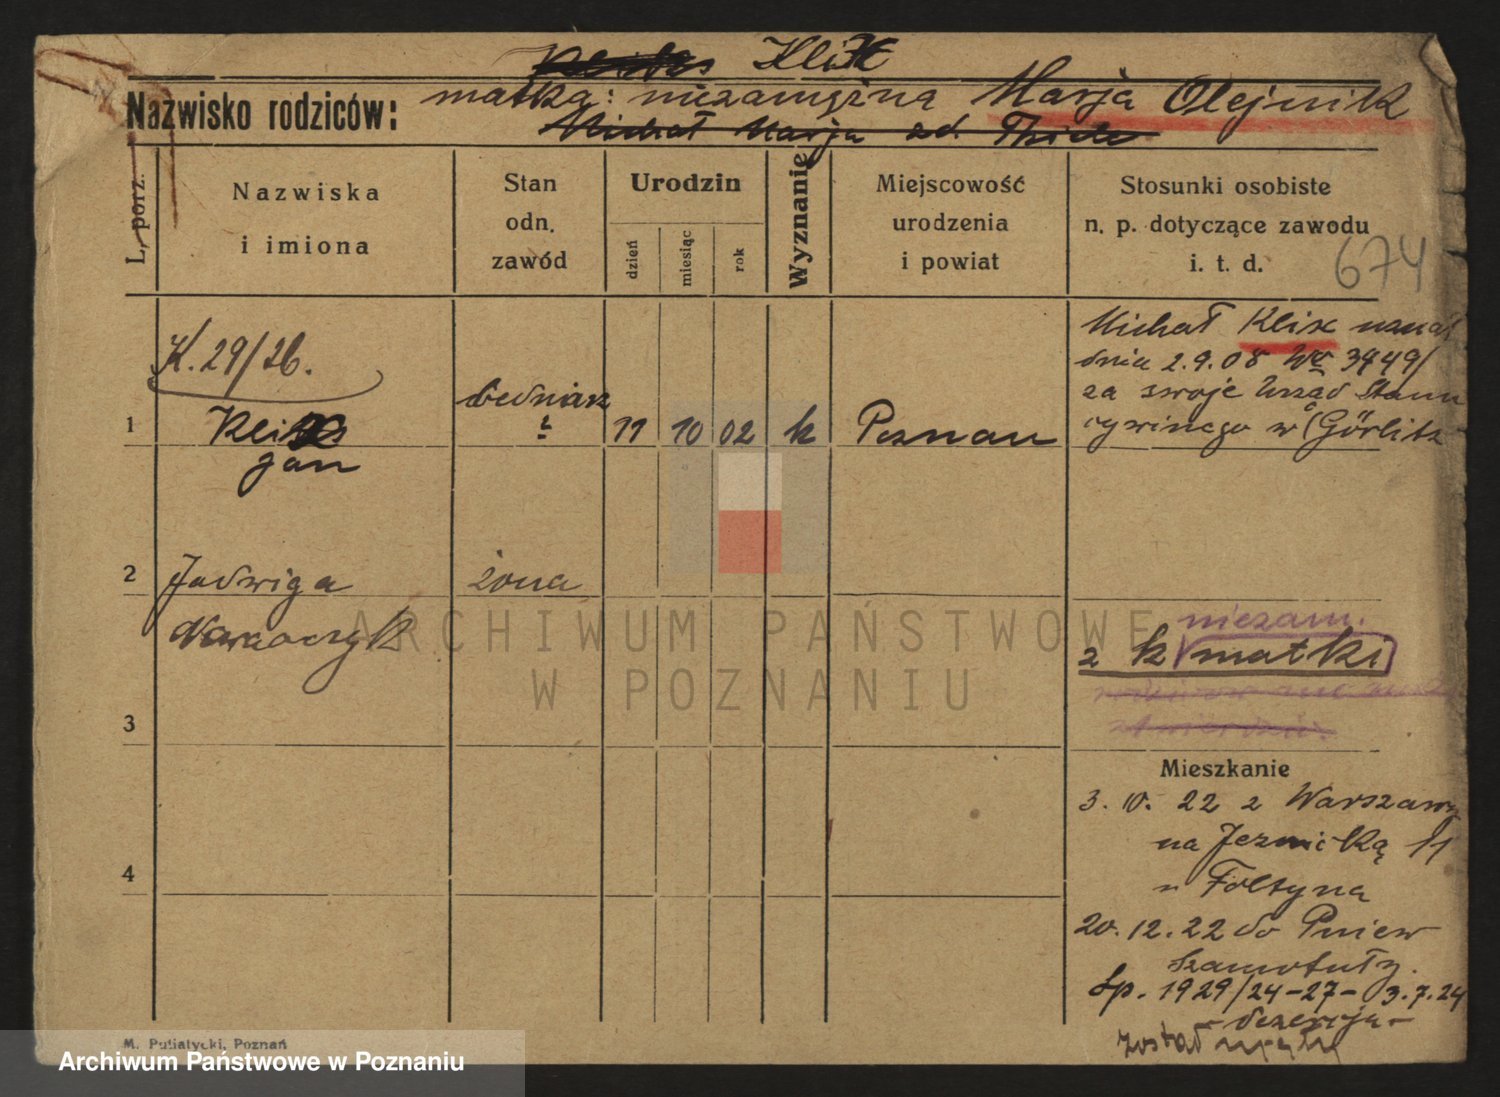 Klix
Nazwisko rodziców: matka: niezamężna Marja Olejnik
Michał Marja zd. Thiele
L. porz.
Nazwiska
i imiona
Stan
odn.
zawód
Urodzin
dzień
miesiąc
rok
Wyznanie
Miejscowość
urodzenia
i powiat
Stosunki osobiste
n. p. dotyczące zawodu
i. t. d.
674
K. 29/26.
Michał Klix uznał
dnia 2.9.08 No 3449/
za swoje Urząd Stanu
cywilnego w Görlitz
1
Jan
bednarz
11 10 02 k Poznań
2 Jadwiga żona
Nawroczyk
niezam.
z k matki
3
4
Mieszkanie
3. 10. 22 z Warszawy
na Jeznicką 11
u Foltyna
20. 12. 22 do Pniew
Szamotuły.
Sp. 1929/24-27- 3.7.24
- dezercja -
został
M. Putiatycki, Poznań
ARCHIWUM PAŃSTWOWE
W POZNANIU
Archiwum Państwowe w Poznaniu